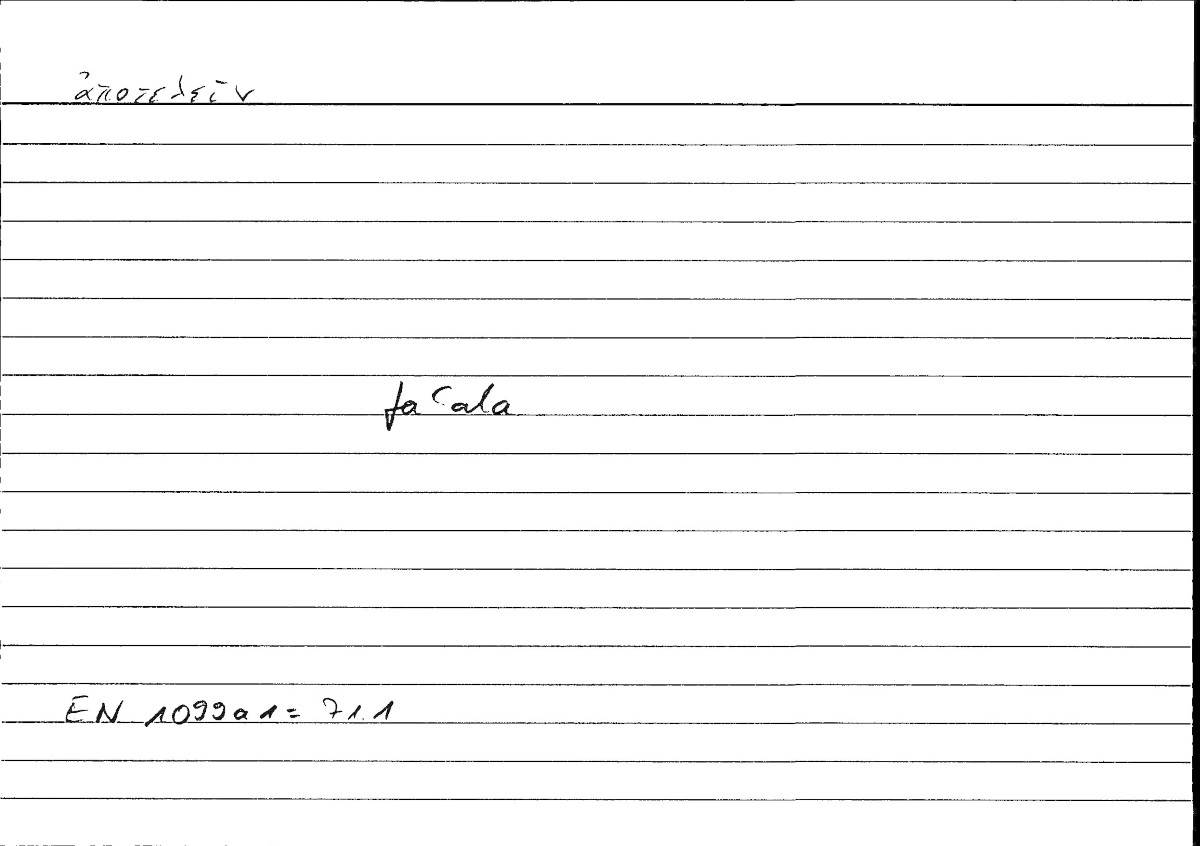 ἀποτελεῖν
faʿala
EN 1099a1 = 71.1